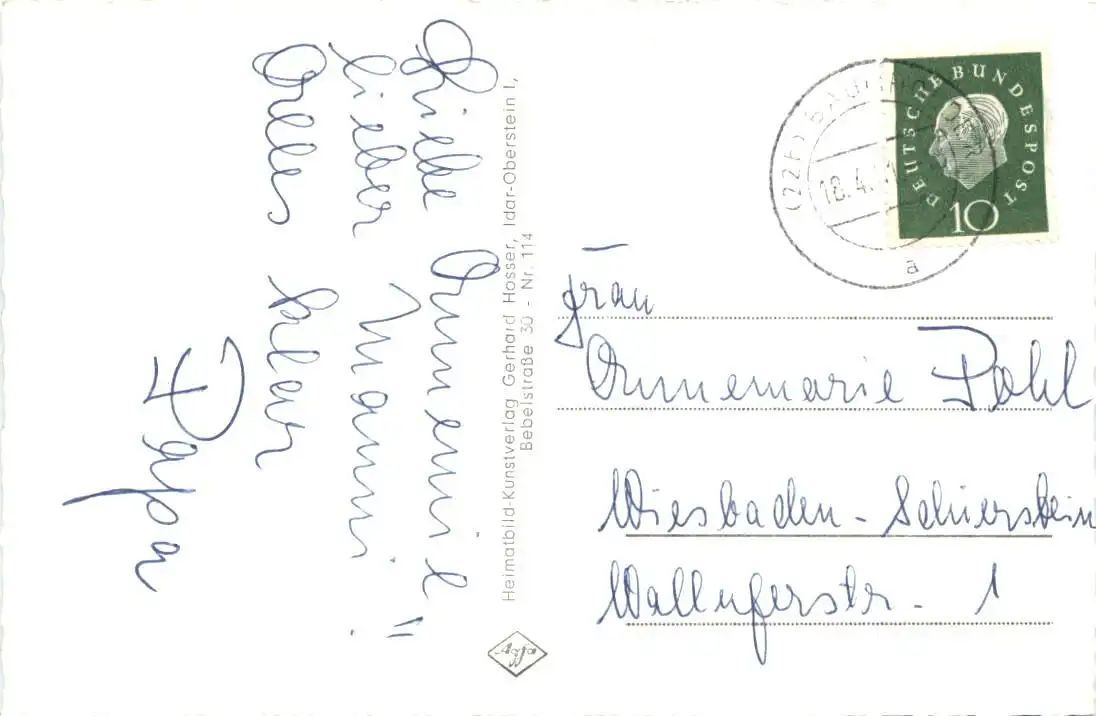 Liebe Annemie
lieber Manni.
Alles klar
Papa
Heimatbild-Kunstverlag Gerhard Hosser, Idar-Oberstein I,
Bebelstraße 30 - Nr. 114
Agfa
DEUTSCHE BUNDESPOST
10
(22b) BAUMHOLDER
18.4.
a
Frau
Annemarie Pohl
Wiesbaden-Schierstein
Wallufer str. 1